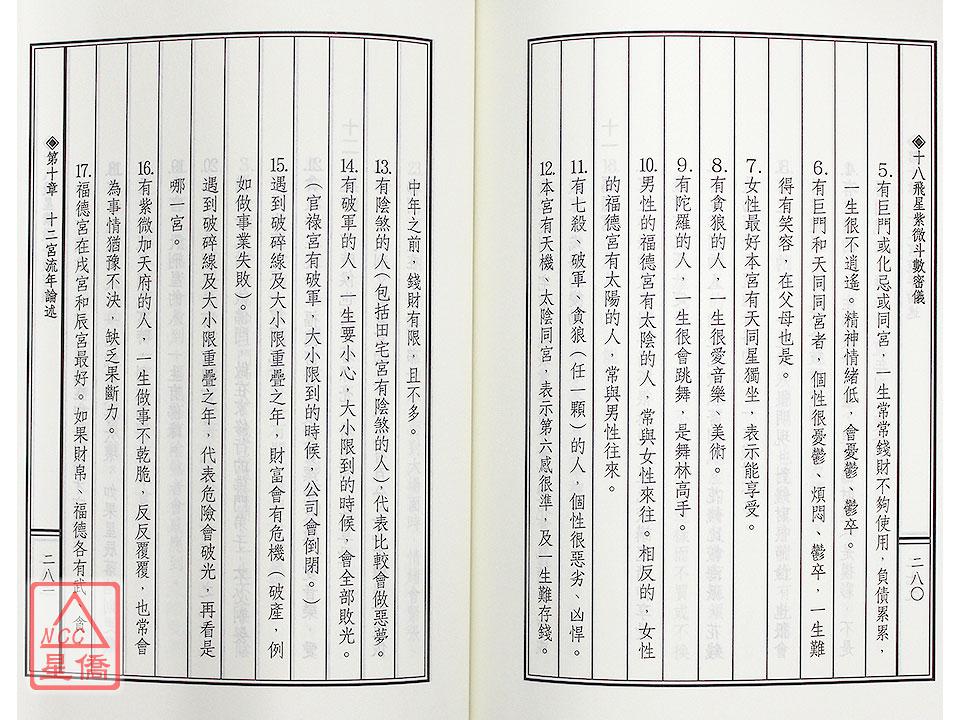 ◈十八飛星紫微斗數密儀
二八〇
5.有巨門或化忌或同宮，一生常常錢財不夠使用，負債累累，
一生很不逍遙。精神情緒低，會憂鬱、鬱卒。
6.有巨門和天同同宮者，個性很憂鬱、煩悶、鬱卒，一生難
得有笑容，在父母也是。
7.女性最好本宮有天同星獨坐，表示能享受。
8.有貪狼的人，一生很愛音樂、美術。
9.有陀羅的人，一生很會跳舞，是舞林高手。
10.男性的福德宮有太陰的人，常與女性來往。相反的，女性
的福德宮有太陽的人，常與男性往來。
11.有七殺、破軍、貪狼（任一顆）的人，個性很惡劣、凶悍。
12.本宮有天機、太陰同宮，表示第六感很準，及一生難存錢。
中年之前，錢財有限，且不多。
13.有陰煞的人（包括田宅宮有陰煞的人），代表比較會做惡夢。
14.有破軍的人，一生要小心，大小限到的時候，會全部敗光。
（官祿宮有破軍，大小限到的時候，公司會倒閉。）
15.遇到破碎線及大小限重疊之年，財富會有危機（破產，例
如做事業失敗）。
遇到破碎線及大小限重疊之年，代表危險會破光，再看是
哪一宮。
16.有紫微加天府的人，一生做事不乾脆，反反覆覆，也常會
為事情猶豫不決，缺乏果斷力。
17.福德宮在戌宮和辰宮最好。如果財帛、福德各有武 貪
◈第十章 十二宮流年論述
二八
NCC
星僑